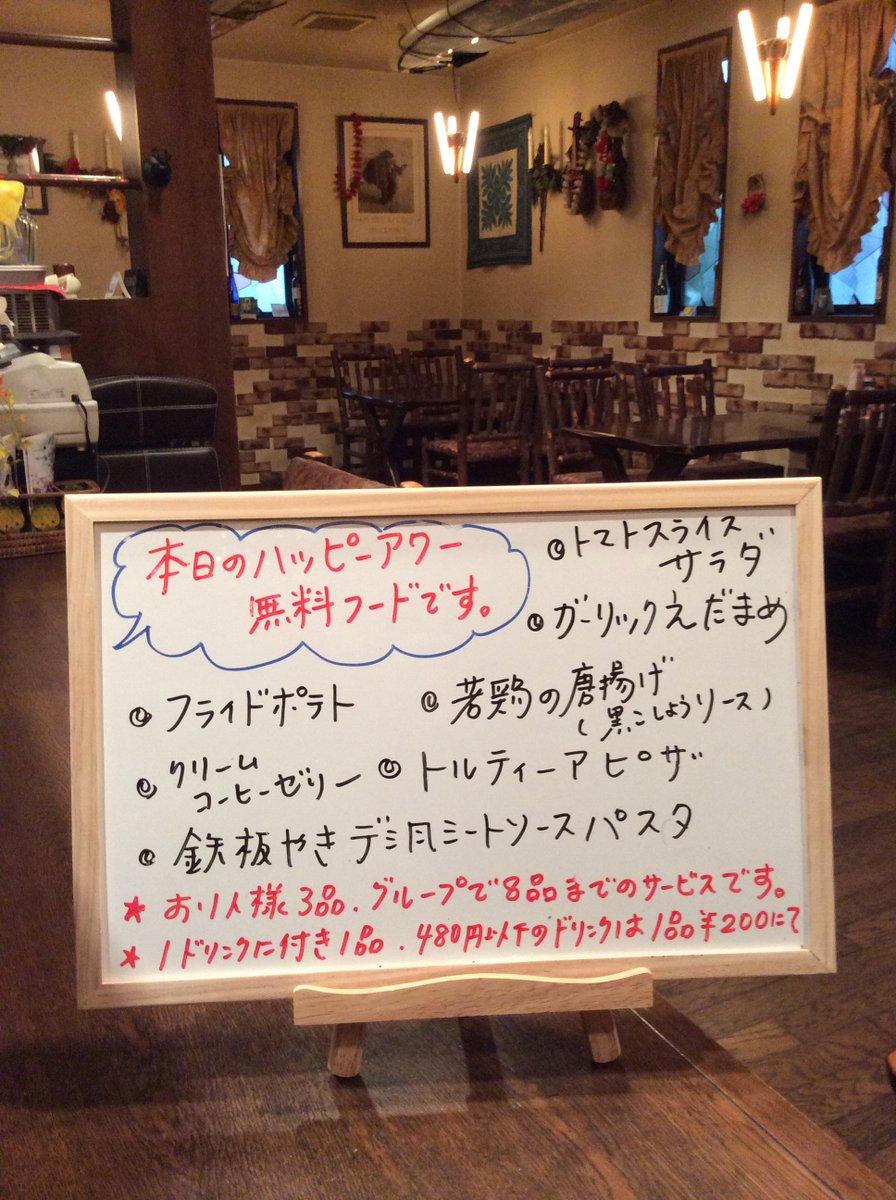 本日のハッピーアワー
無料フードです。
◎トマトスライス
サラダ
◎ガーリックえだまめ
◎フライドポテト
◎若鶏の唐揚げ
(黒こしょうソース)
◎クリーム
コーヒーゼリー
◎トルティーアピザ
◎鉄板やきデミ風ミートソースパスタ
★お1人様3品.グループで8品までのサービスです。
★1ドリンクに付き1品.480円以下のドリンクは1品¥200にて